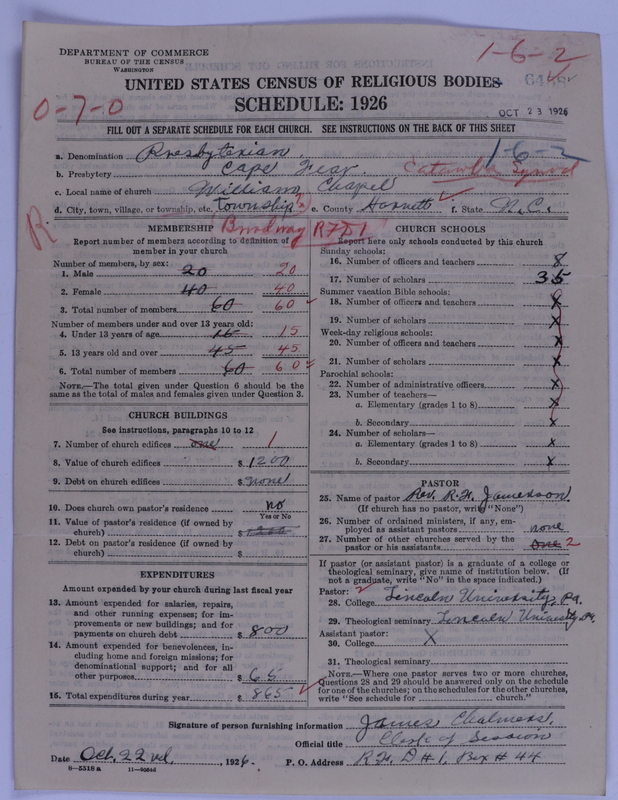 DEPARTMENT OF COMMERCE
BUREAU OF THE CENSUS
WASHINGTON
1-6-2
UNITED STATES CENSUS OF RELIGIOUS BODIES
0-7-0
SCHEDULE: 1926
OCT 23 1926
FILL OUT A SEPARATE SCHEDULE FOR EACH CHURCH. SEE INSTRUCTIONS ON THE BACK OF THIS SHEET
a. Denomination Presbyterian
1-6-2
b. Presbytery Cape Fear Catawba Synod
c. Local name of church William Chapel
d. City, town, village, or township, etc. township e. County Harnett f. State N.C.
R
Broadway RFD1
MEMBERSHIP
Report number of members according to definition of
member in your church
Number of members, by sex:
1. Male 20 20
2. Female 40 40
3. Total number of members 60 60
Number of members under and over 13 years old:
4. Under 13 years of age 15 15
5. 13 years old and over 45 45
6. Total number of members 60 60
NOTE.—The total given under Question 6 should be
same as the total of males and females given under Question 3.
CHURCH BUILDINGS
See instructions, paragraphs 10 to 12
7. Number of church edifices one 1
8. Value of church edifices $ 1200
9. Debt on church edifices $ none
10. Does church own pastor's residence no
Yes or No
11. Value of pastor's residence (if owned by
church) $
12. Debt on pastor's residence (if owned by
church) $
EXPENDITURES
Amount expended by your church during last fiscal year
13. Amount expended for salaries, repairs,
and other running expenses; for im-
provements or new buildings; and for
payments on church debt $ 800
14. Amount expended for benevolences, in-
cluding home and foreign missions; for
denominational support; and for all
other purposes $ 65
15. Total expenditures during year $ 865
CHURCH SCHOOLS
Report here only schools conducted by this church
Sunday schools:
16. Number of officers and teachers 8
17. Number of scholars 35
Summer vacation Bible schools:
18. Number of officers and teachers x
19. Number of scholars x
Week-day religious schools:
20. Number of officers and teachers x
21. Number of scholars x
Parochial schools:
22. Number of administrative officers x
23. Number of teachers—
a. Elementary (grades 1 to 8) x
b. Secondary x
24. Number of scholars—
a. Elementary (grades 1 to 8) x
b. Secondary x
PASTOR
25. Name of pastor Rev. R. H. Jamerson
(If church has no pastor, write "None")
26. Number of ordained ministers, if any, em-
ployed as assistant pastors none
27. Number of other churches served by the
pastor or his assistants one 2
If pastor (or assistant pastor) is a graduate of a college or
theological seminary, give name of institution below. (If
not a graduate, write "No" in the space indicated.)
Pastor:
28. College Lincoln University, Pa.
29. Theological seminary Lincoln University Pa.
Assistant pastor:
30. College X
31. Theological seminary
NOTE.—Where one pastor serves two or more churches,
Questions 28 and 29 should be answered only on the schedule
for one of the churches; on the schedules for the other churches,
write "See schedule for church."
Signature of person furnishing information James Chalmers.
Official title Clerk of Session
Date Oct, 22nd, 1926. P. O. Address R.F.D #1, Box #44
8—5518 a